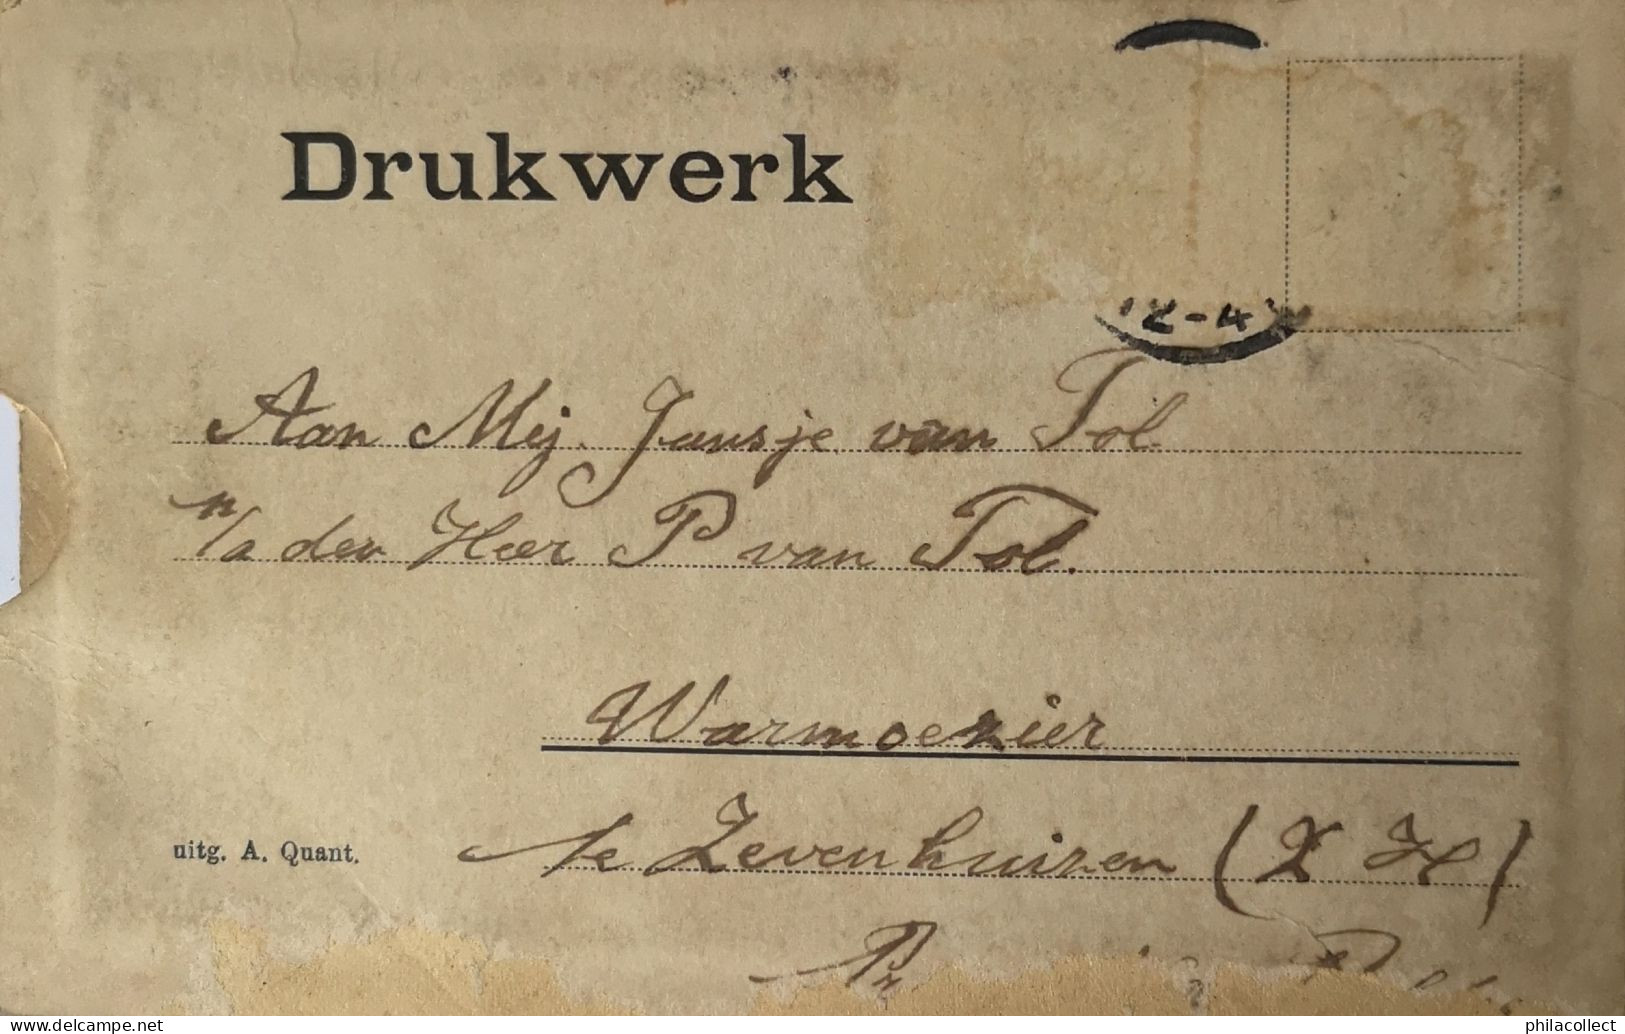 Drukwerk
12-4
Aan Mej. Jansje van Tol
p/a den Heer P van Tol.
Warmoezier
te Zevenhuizen (Z H)
uitg. A. Quant.
delcampe.net
philacollect